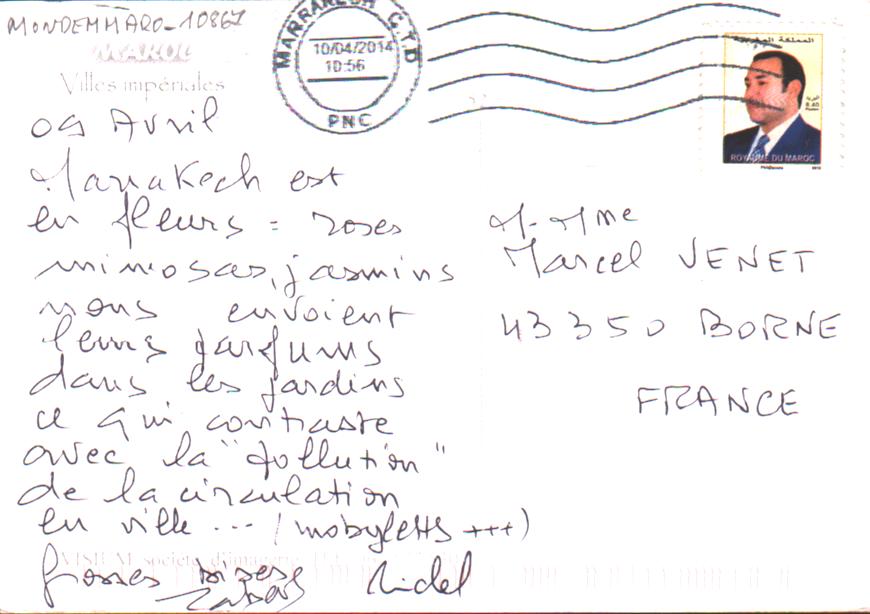 MONDEMMARO-10867
MAROC
Villes impériales
MARRAKECH C.T.D
10/04/2014
10:56
PNC
المملكة المغربية
8.40
ROYAUME DU MAROC
09 Avril
Marrakech est
en fleurs = roses
mimosas, jasmins
nous envoient
leurs parfums
dans les jardins
ce qui contraste
avec la "pollution"
de la circulation
en ville ... (mobyletts +++)
Grosses bises
M-Mme
Marcel VENET
43350 BORNE
FRANCE